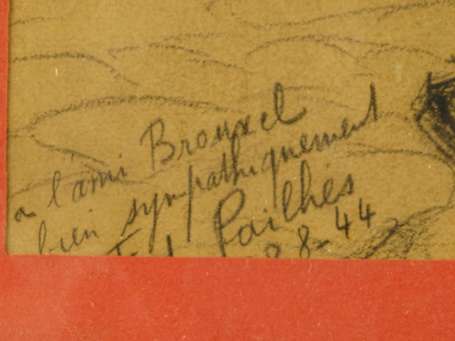 a l'ami Brouxel
bien sympathiquement
Pailhès
8-44